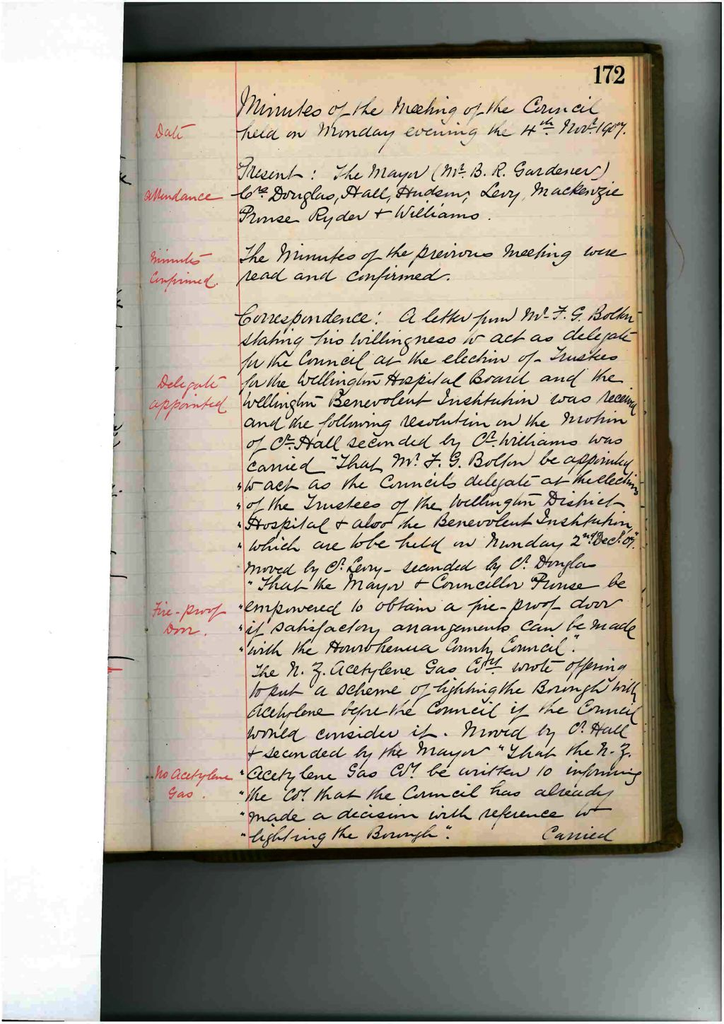 172
Minutes of the Meeting of the Council
Date
held on Monday evening the 4th Novr. 1907.
Present: The Mayor (Mr. B. R. Gardener)
Attendance
Crs Douglas, Hall, Hudson, Levy, Mackenzie
Prouse Ryder + Williams.
Minutes
The Minutes of the previous Meeting were
Confirmed.
read and confirmed.
Correspondence: A letter from Mr. F. G. Bolton
stating his willingness to act as delegate
for the Council at the election of Trustees
Delegate
for the Wellington Hospital Board and the
appointed
Wellington Benevolent Institution was received
and the following resolution on the Motion
of Cr. Hall seconded by Cr. Williams was
carried "That Mr. F. G. Bolton be appointed
" to act as the Councils delegate at the election
" of the Trustees of the Wellington District
" Hospital + also the Benevolent Institution,
" which are to be held on Monday 2nd Decr. 07".
Moved by Cr. Levy - seconded by Cr. Douglas
"That the Mayor + Councillor Prouse be
Fire-proof
" empowered to obtain a fire-proof door
Door.
" if satisfactory arrangements can be made
" with the Horowhenua County Council".
The N. Z. Acetylene Gas Coy. wrote offering
to put a scheme of lighting the Borough with
Acetylene before the Council if the Council
would consider it. Moved by Cr. Hall
+ seconded by the Mayor "That the N. Z.
No Acetylene
" Acetylene Gas Coy. be written to informing
Gas.
" the Coy. that the Council has already
" made a decision with reference to
" lighting the Borough". Carried